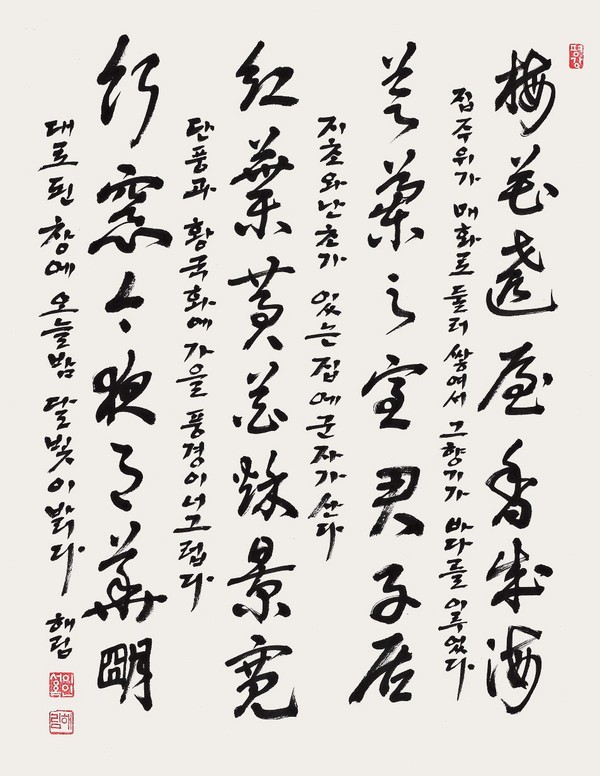 梅花遶屋香成海
집주위가 매화로 둘러 쌓여서 그향기가 바다를 이루었다
芝蘭之室君子居
지초와 난초가 있는 집에 군자가 산다
紅葉黃花秋景寬
단풍과 황국화에 가을 풍경이 너그럽다
竹窓今夜月華朙
대로 된 창에 오늘밤 달빛이 밝다